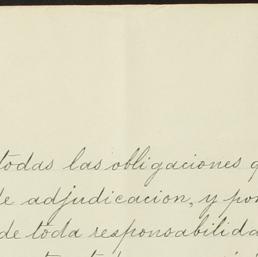 todas las obligaciones
de adjudicacion, y por
de toda responsabilida